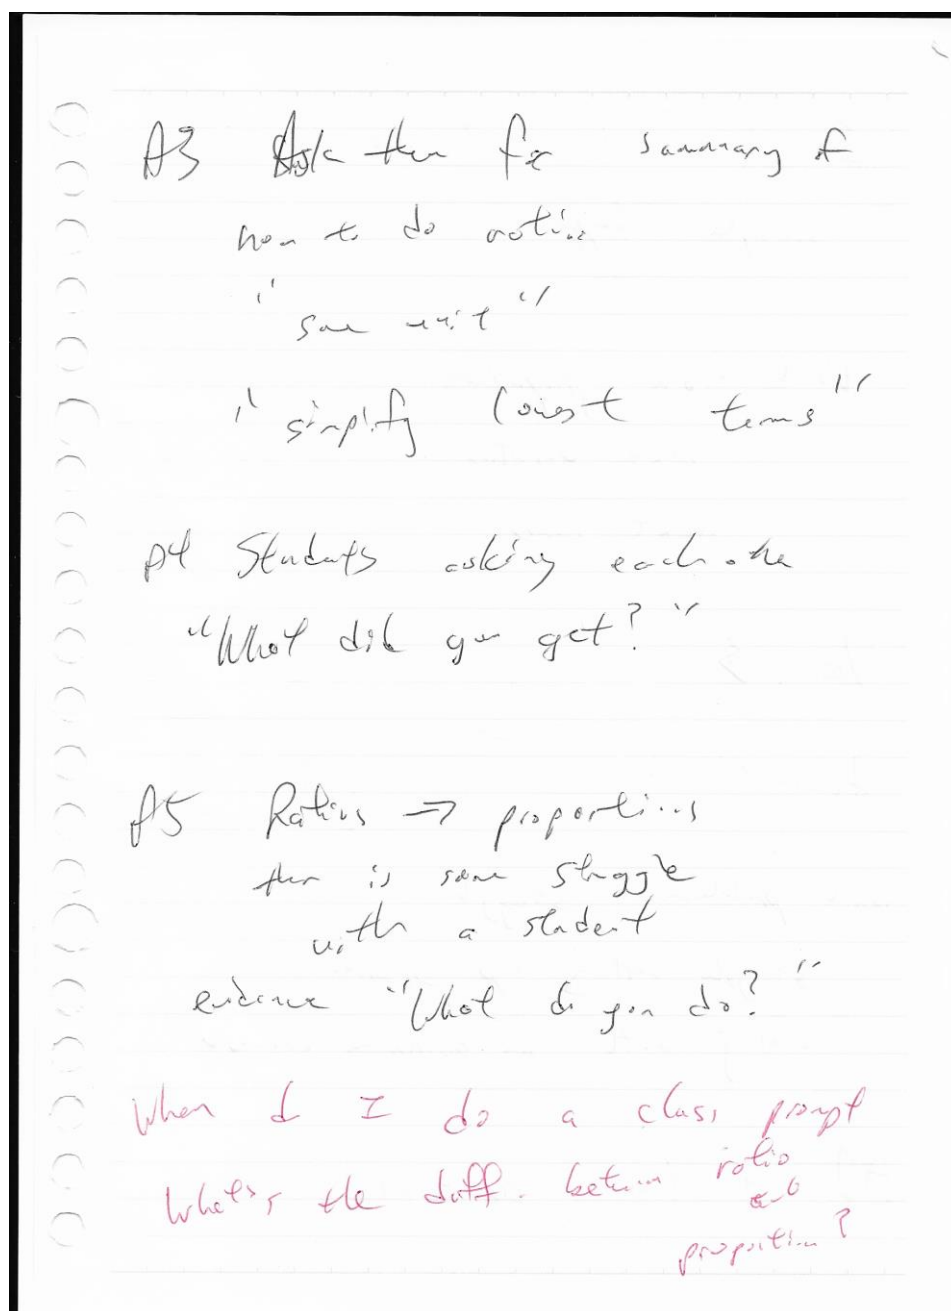 A3 Ask them for summary of
how to do ratios
"same unit"
"simplify lowest terms"
A4 Students asking each other
"What did you get?"
A5 Ratios → proportions
ther is some struggle
with a student
evidence "What do you do?"
When do I do a class prompt
What's the diff. between ratio
and
proportion?